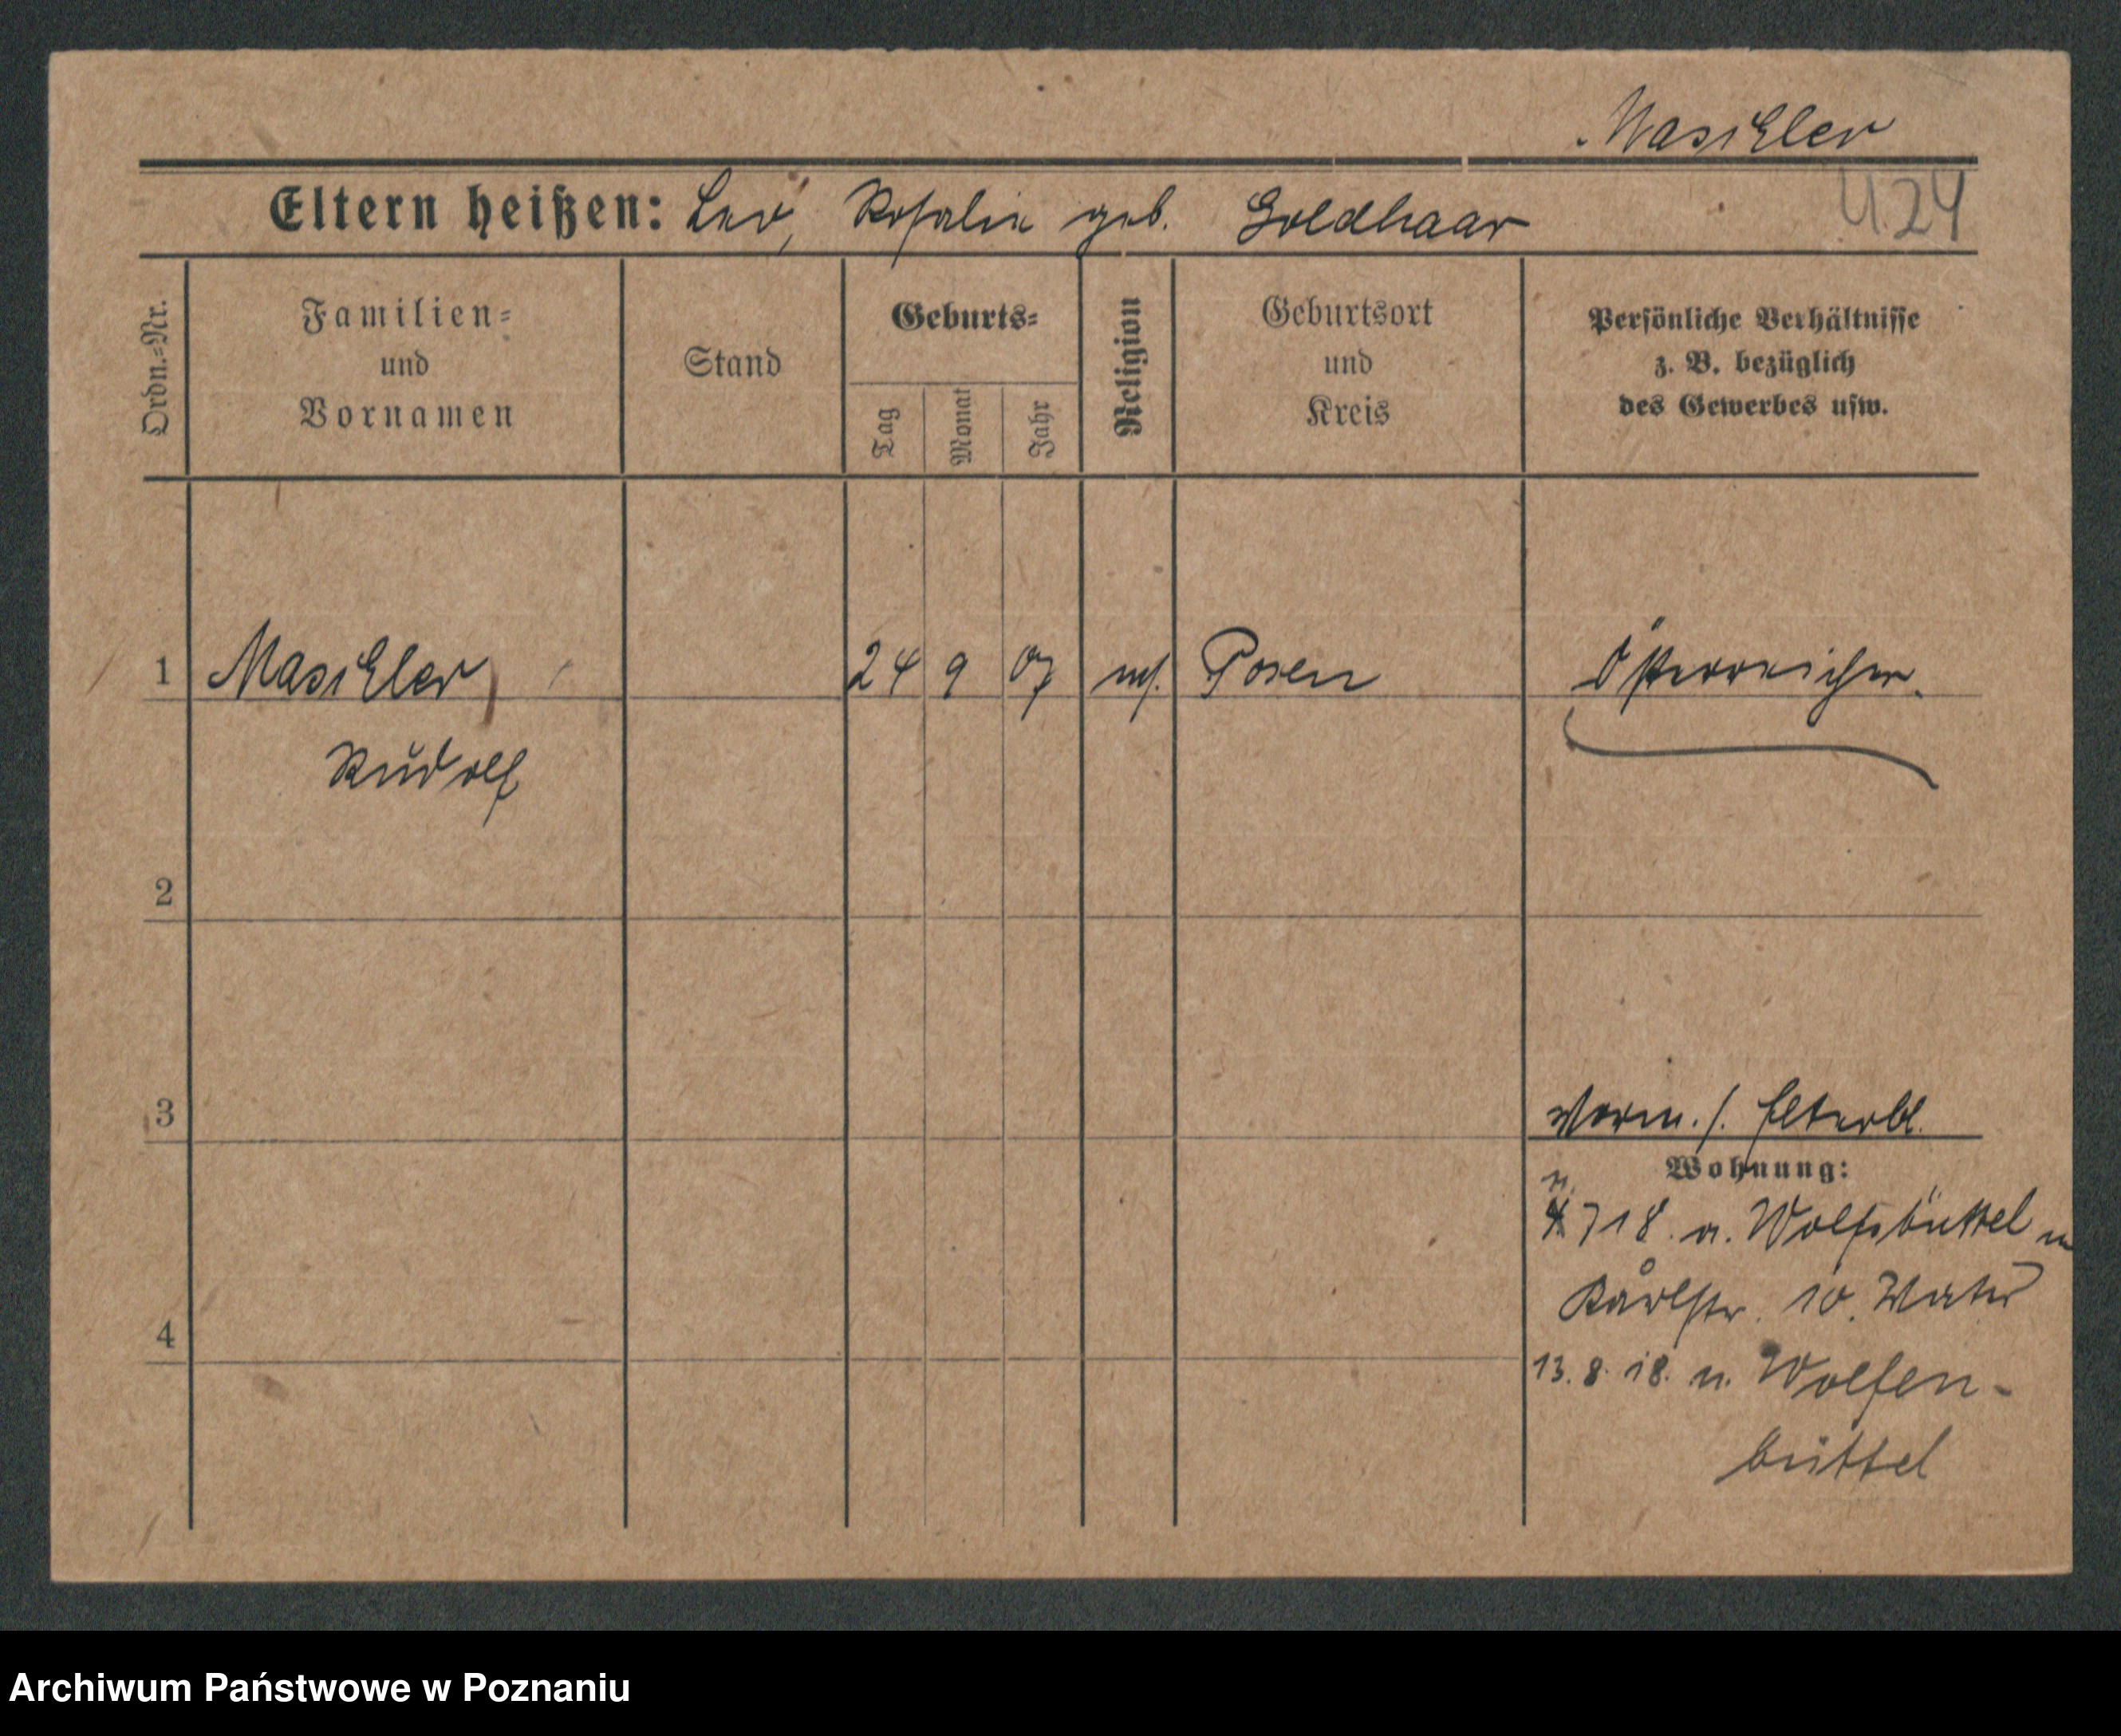 Maschler
Eltern heißen: Leo, Rosalie geb. Goldhaar
U.24
Ordn.=Nr.
Familien=
und
Vornamen
Stand
Geburts=
Tag
Monat
Jahr
Religion
Geburtsort
und
Kreis
Persönliche Verhältnisse
z. B. bezüglich
des Gewerbes usw.
1 Maschler, 24 9 07 mos. Posen Österreicher.
Rudolf
2
3
Wohnung:
718. n. Wolfsbüttel
Karlstr. 10. Vater
4
13. 8. 18. n. Wolfen-
büttel
Archiwum Państwowe w Poznaniu